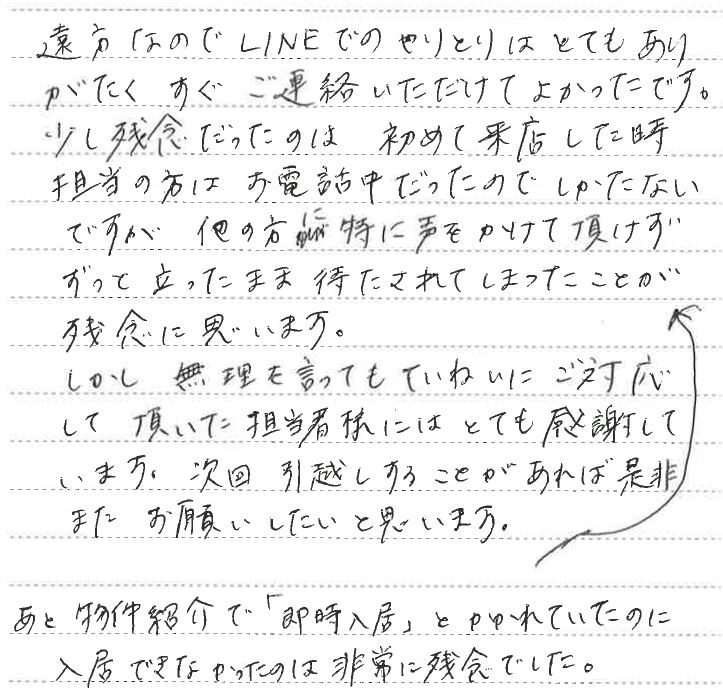 遠方なのでLINEでのやりとりはとてもあり
がたく すぐ ご連絡いただけてよかったです。
少し残念だったのは 初めて来店した時
担当の方は お電話中だったので しかたない
ですが 他の方に特に声をかけて頂けず
ずっと立ったまま 待たされてしまったことが
残念に思います。
しかし 無理を言ってもていねいに ご対応
して 頂いた担当者様にはとても感謝して
います。次回 引越しすることがあれば是非
また お願いしたいと思います。
あと 物件紹介で「即時入居」とかかれていたのに
入居できなかったのは非常に残念でした。